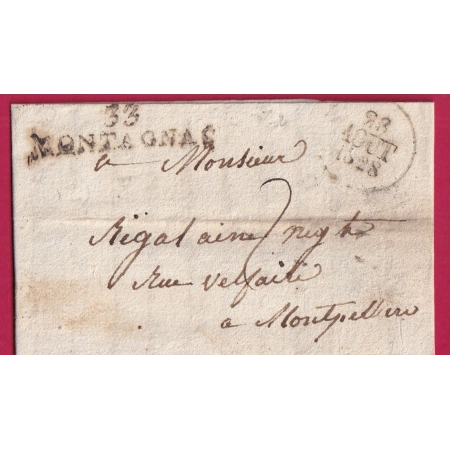 33
MONTAGNAC
23
AOUT
1828
a Monsieur
Rigal ainé negt
Rue Velfaiti
a Montpellier